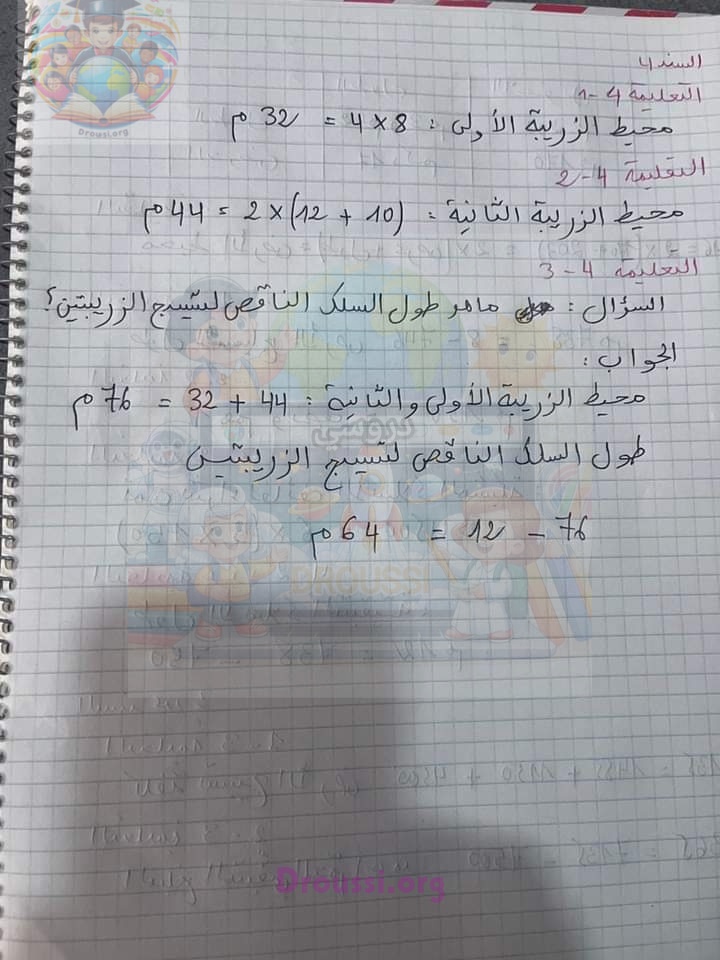 السند 4
التعليمة 4-1
محيط الزريبة الأولى: 8 × 4 = 32 م
التعليمة 4-2
محيط الزريبة الثانية: (10 + 12) × 2 = 44 م
التعليمة 4-3
السؤال: ماهو طول السلك الناقص لتسييج الزريبتين؟
الجواب:
محيط الزريبة الأولى والثانية: 44 + 32 = 76 م
طول السلك الناقص لتسييج الزريبتين
76 - 12 = 64 م
دروسي
DROUSSI
Droussi.org
Droussi.org